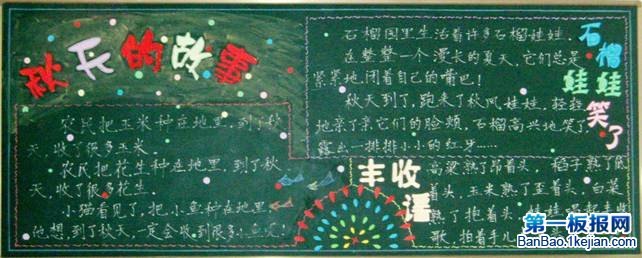 秋天的故事
农民把玉米种在地里,到了秋
天,收了很多玉米。
农民把花生种在地里,到了秋
天,收了很多花生。
小猫看见了,把小鱼种在地里
他想,到了秋天一定会收到很多小鱼
石榴娃娃笑了
石榴园里生活着许多石榴娃娃。
在整整一个漫长的夏天,它们总是
紧紧地闭着自己的嘴巴!
秋天到了,跑来了秋风娃娃,轻轻
地亲了亲它们的脸颊,石榴高兴地笑了,
露出一排排小小的红牙……
丰收语
高粱熟了昂着头,稻子熟了
着头,玉米熟了歪着头,白菜
熟了抱着头,
歌,拍着手儿
第一板报网
BanBao.1kejian.com